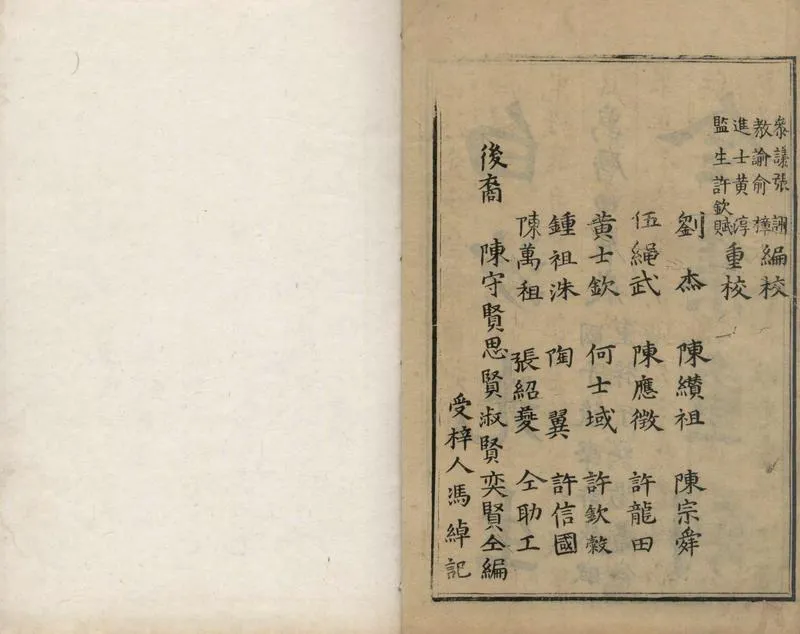 參議張詡
教諭俞樟編校
進士黄淳
監生許欽賦重校
劉杰 陳纘祖 陳宗舜
伍繩武 陳應徵 許龍田
黄士欽 何士域 許欽㝅
鍾祖洙 陶翼 許信國
陳萬祖 張紹夔 仝助工
後裔 陳守賢思賢淑賢奕賢仝編
受梓人馮綽記